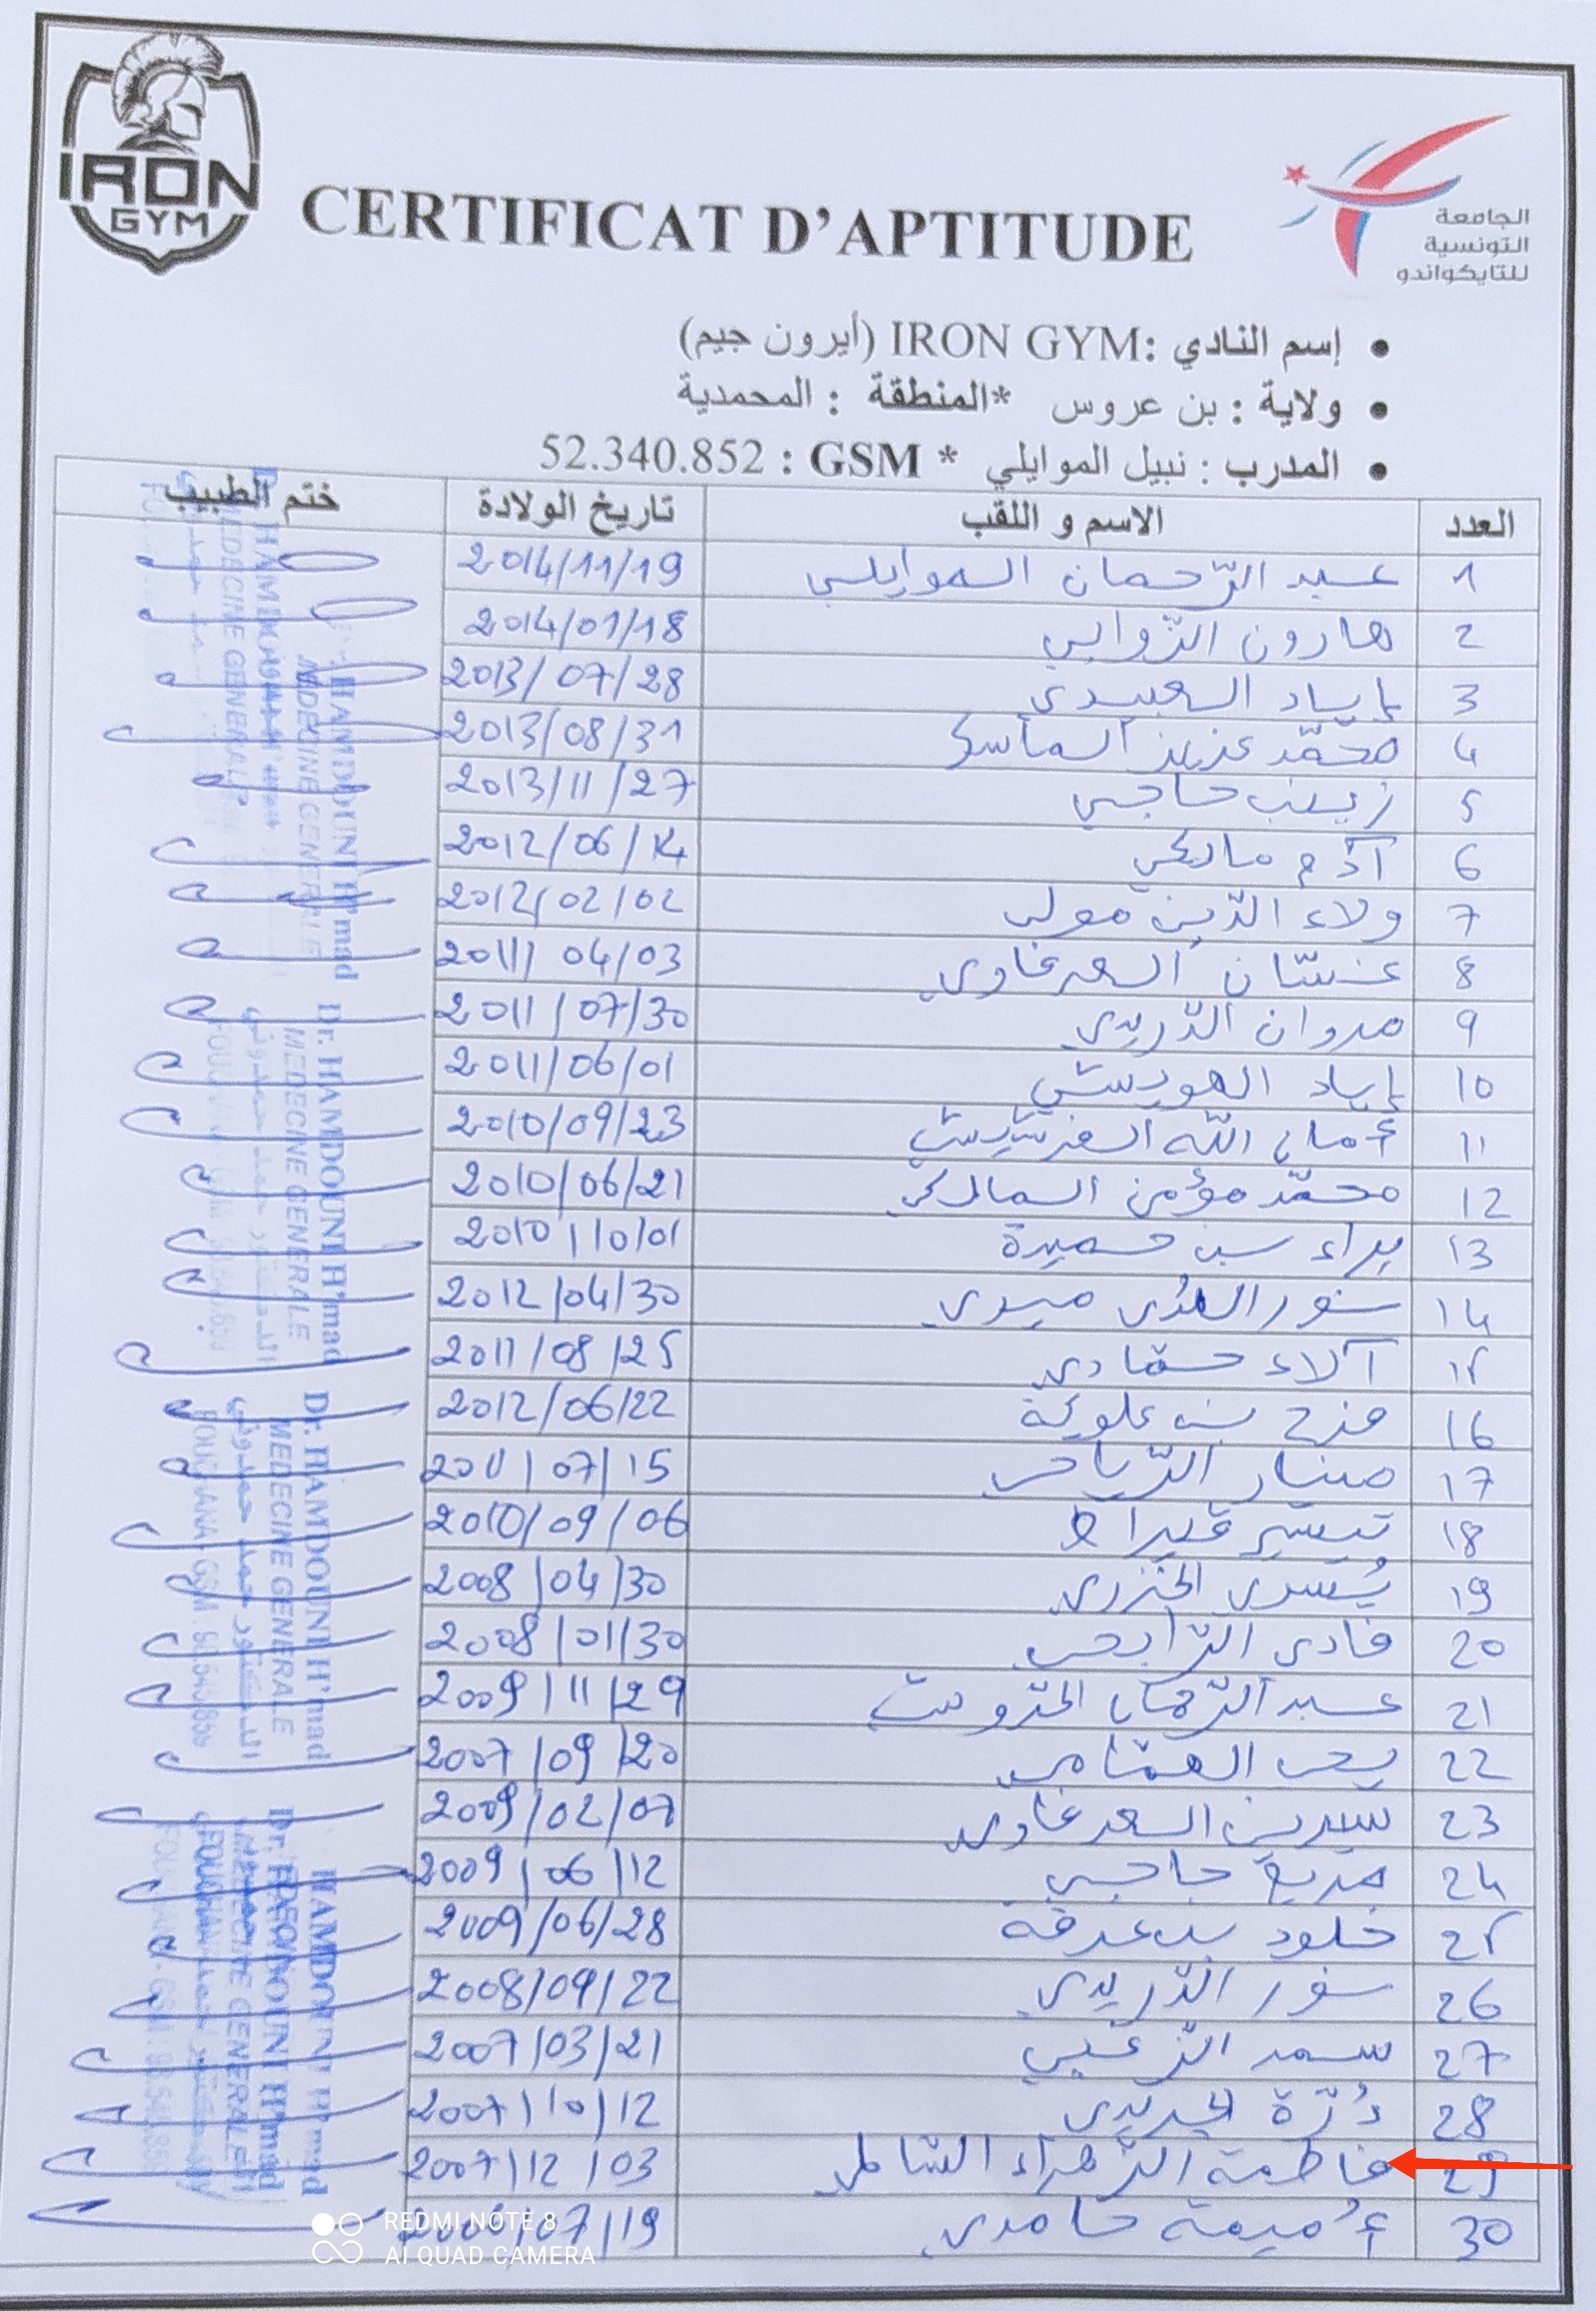 IRON
GYM
CERTIFICAT D'APTITUDE
الجامعة
التونسية
للتايكواندو
إسم النادي :IRON GYM (أيرون جيم)
ولاية : بن عروس *المنطقة : المحمدية
المدرب : نبيل الموايلي * GSM : 52.340.852
العدد الاسم و اللقب تاريخ الولادة ختم الطبيب
1 عبد الرّحمان الموايلي 2014/11/19
2 هارون الزّوابي 2014/01/18
3 إياد العبيدي 2013/07/28
4 محمّد عزيز الماسي 2013/08/31
5 زينب حاجي 2013/11/27
6 آدم مالكي 2012/06/14
7 ولاء الدّين 2012/02/02
8 غسّان السعرغاوي 2011/04/03
9 مروان الدّريدي 2011/07/30
10 إياد 2011/06/01
11 أمان الله الفرشيشي 2010/09/23
12 محمّد مؤمن المالكي 2010/06/21
13 براء بن حميدة 2010/10/01
14 نور الهدى ميدي 2012/04/30
15 آلاء حمّادي 2011/08/25
16 فرح بن علويّة 2012/06/22
17 منار الرّياحي 2011/07/15
18 تيسير قيراط 2010/09/06
19 يُسرى الخزري 2008/04/30
20 فادي الرّابحي 2008/01/30
21 عبد الرّحمان 2009/11/29
22 يحي الهمّامي 2007/09/20
23 سيرين السعرغاوي 2009/02/07
24 مريم حاجي 2009/06/12
25 خلود بن عرفة 2009/06/28
26 نور الدّريدي 2008/09/22
27 سمر الزّغبي 2007/03/21
28 دُرّة الجريدي 2007/10/12
29 فاطمة الزّهراء الشّاملي 2007/12/03
30 أُميمة حامدي 07/19
Dr. HAMDOUNI H'mad
MEDECINE GENERALE
الدكتور حمد حمدوني
FOUCHANA - GSM
REDMI NOTE 8
AI QUAD CAMERA